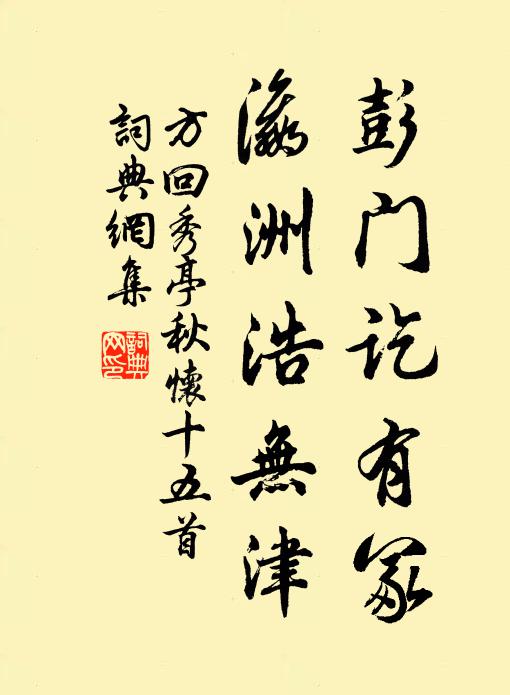 彭门讫有冢
瀛洲浩無津
方回秀亭秋懷十五首
詞典網集
詞典网印